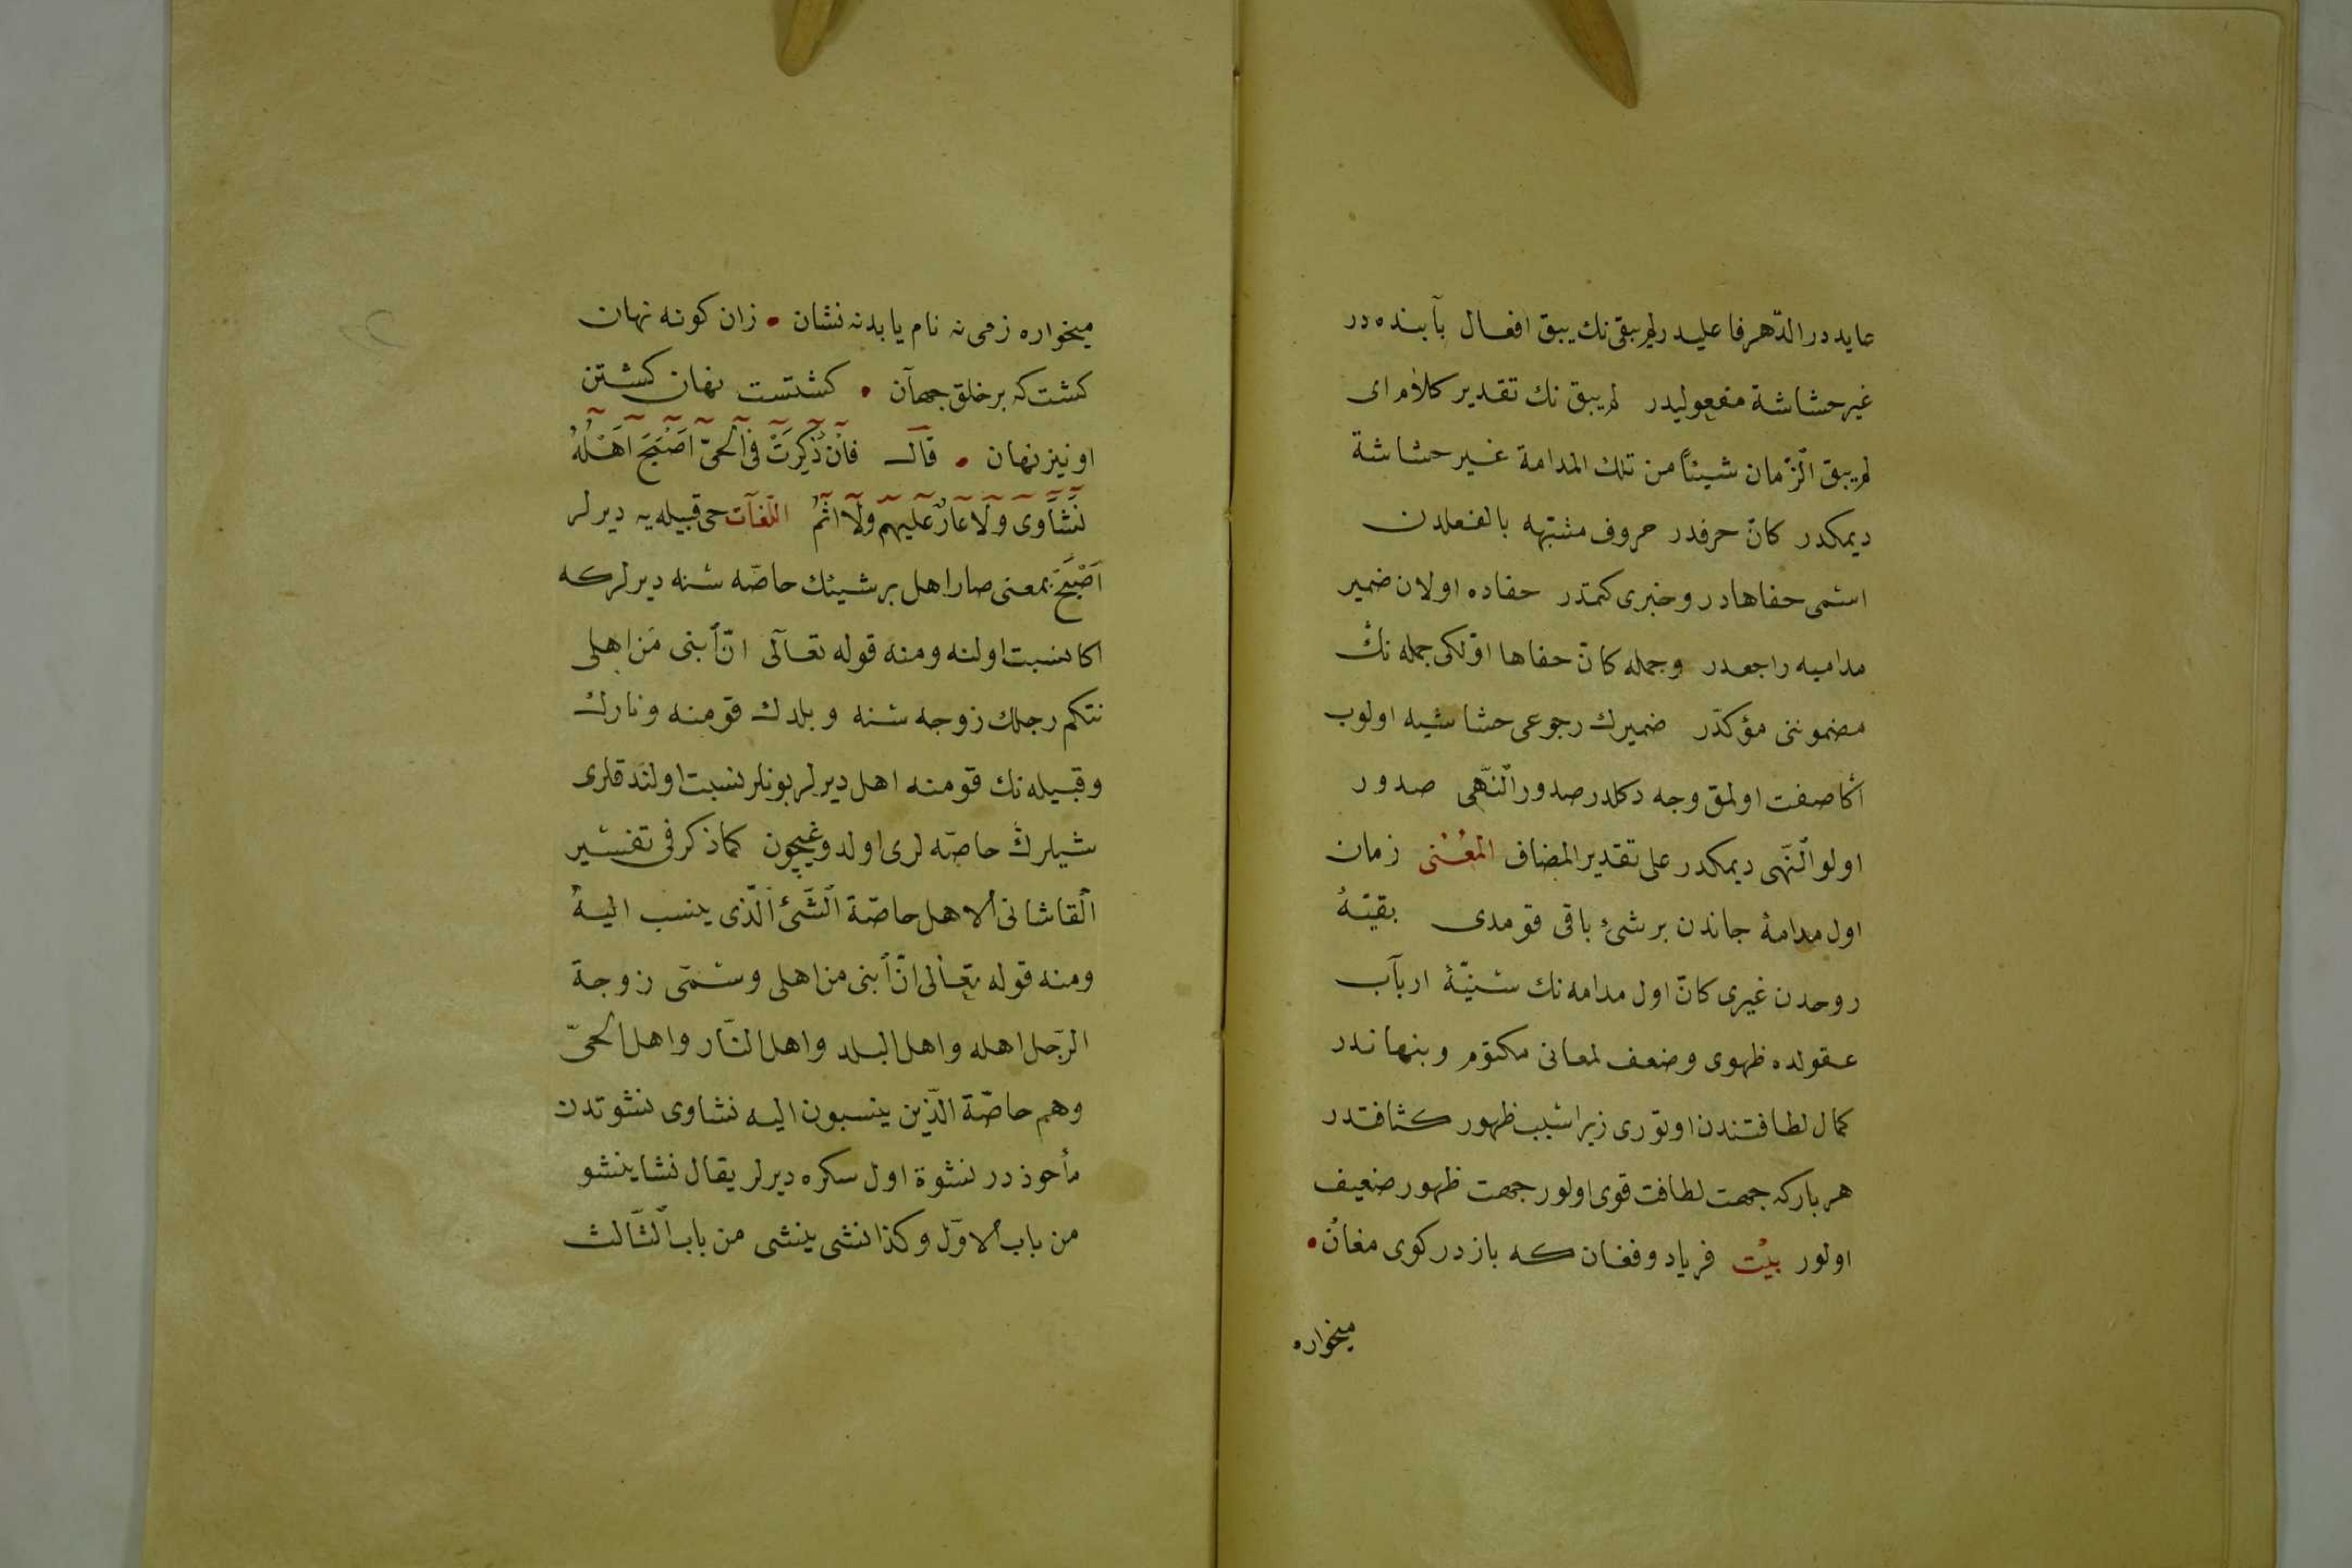 عايد در الدّهر فاعليدر لم يبقى نك يبق افعال بآبنده در
غير حشاشة مفعوليدر لم يبق نك تقدير كلام اى
لم يبق الزّمان شيئاً من تلك المدامة غير حشاشة
ديمكدر كانّ حرفدر حروف مشبّهه بالفعلدن
اسمى خفاها در وخبرى كتمدر خفاده اولان ضمير
مداميه راجعدر وجمله كانّ خفاها اوّلكى جمله نك
مضموننى مؤكدّر ضميرك رجوعى حشاشيه اولوب
اكا صفت اولمق وجه دكلدر صدور النّهى صدور
اولو النّهى ديمكدر على تقدير المضاف المعنى زمان
اول مدامۀ جاندن بر شئ باقى قومدى بقيّۀ
روحدن غيرى كانّ اول مدامه نك ارباب
عقولده ظهوى وضعف لمعانى مكتوم وبنهاندر
كمال لطافتندن اوتورى زيرا سبب ظهور كثافتدر
هر باركه جهت لطافت قوى اولور جهت ظهور ضعيف
اولور بيت فرياد وفغان كه باز در كوى مغان •
ميخواره
ميخواره زمى نه نام يابد نه نشان • زان كونه نهان
كشت كه بر خلق جهان • كشتست نهان كشتن
او نيز نهان • قال فَاِنْ ذُكِرَتْ فِى الْحَىِّ اَصْبَحَ اَهْلُهُ
نَشَاوى وَلَا عَارٌ عَلَيْهِمْ وَلَا اثْمُ اللّغات حى قبيله يه ديرلر
اَصْبَحَ بمعنى صار اهل بر شيئك خاصّه سنه ديرلر كه
اكا نسبت اولنه ومنه قوله تعالى انّ ابنى من اهلى
نتكم رجلك زوجه سنه وبلدك قومنه ونارك
وقبيله نك قومنه اهل ديرلر بونلر نسبت اولندقلرى
شيلرك خاصّه لرى اولدوغيچون كما ذكر فى تفسير
القاشانى الاهل خاصّة الشّئ الّذى ينسب اليه
ومنه قوله تعالى انّ ابنى من اهلى وسمّى زوجة
الرّجل اهله واهل البلد واهل النّار واهل الحىّ
وهم خاصّة الّذين ينسبون اليه نشاوى نشوتدن
مأخوذدر نشوة اول سكره ديرلر يقال نشا ينشو
من باب الاوّل وكذا نشى ينشى من باب الثّالث